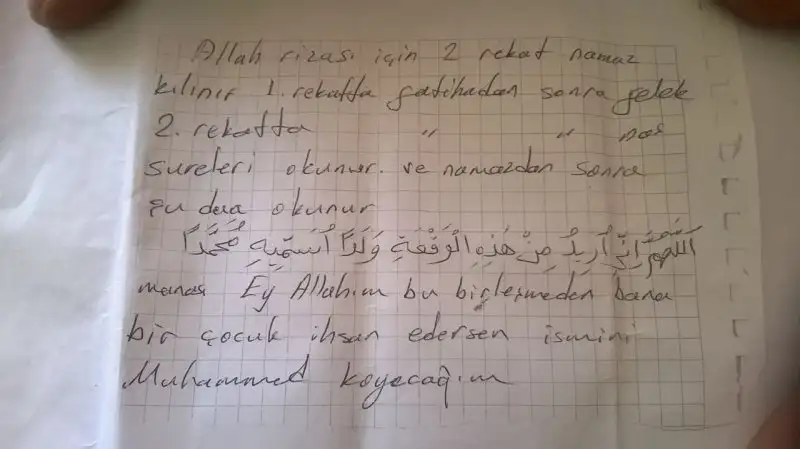 Allah rızası için 2 rekat namaz
kılınır 1. rekatta fatihadan sonra felek
2. rekatta " " nas
sureleri okunur. ve namazdan sonra
şu dua okunur
اَللّٰهُمَّ اِنِّي اُرِيدُ مِنْ هٰذِهِ الْوَقْعَةِ وَلَدًا اُسَمِّيهِ مُحَمَّدًا
manası Ey Allahım bu birleşmeden bana
bir çocuk ihsan edersen ismini
Muhammed koyacağım